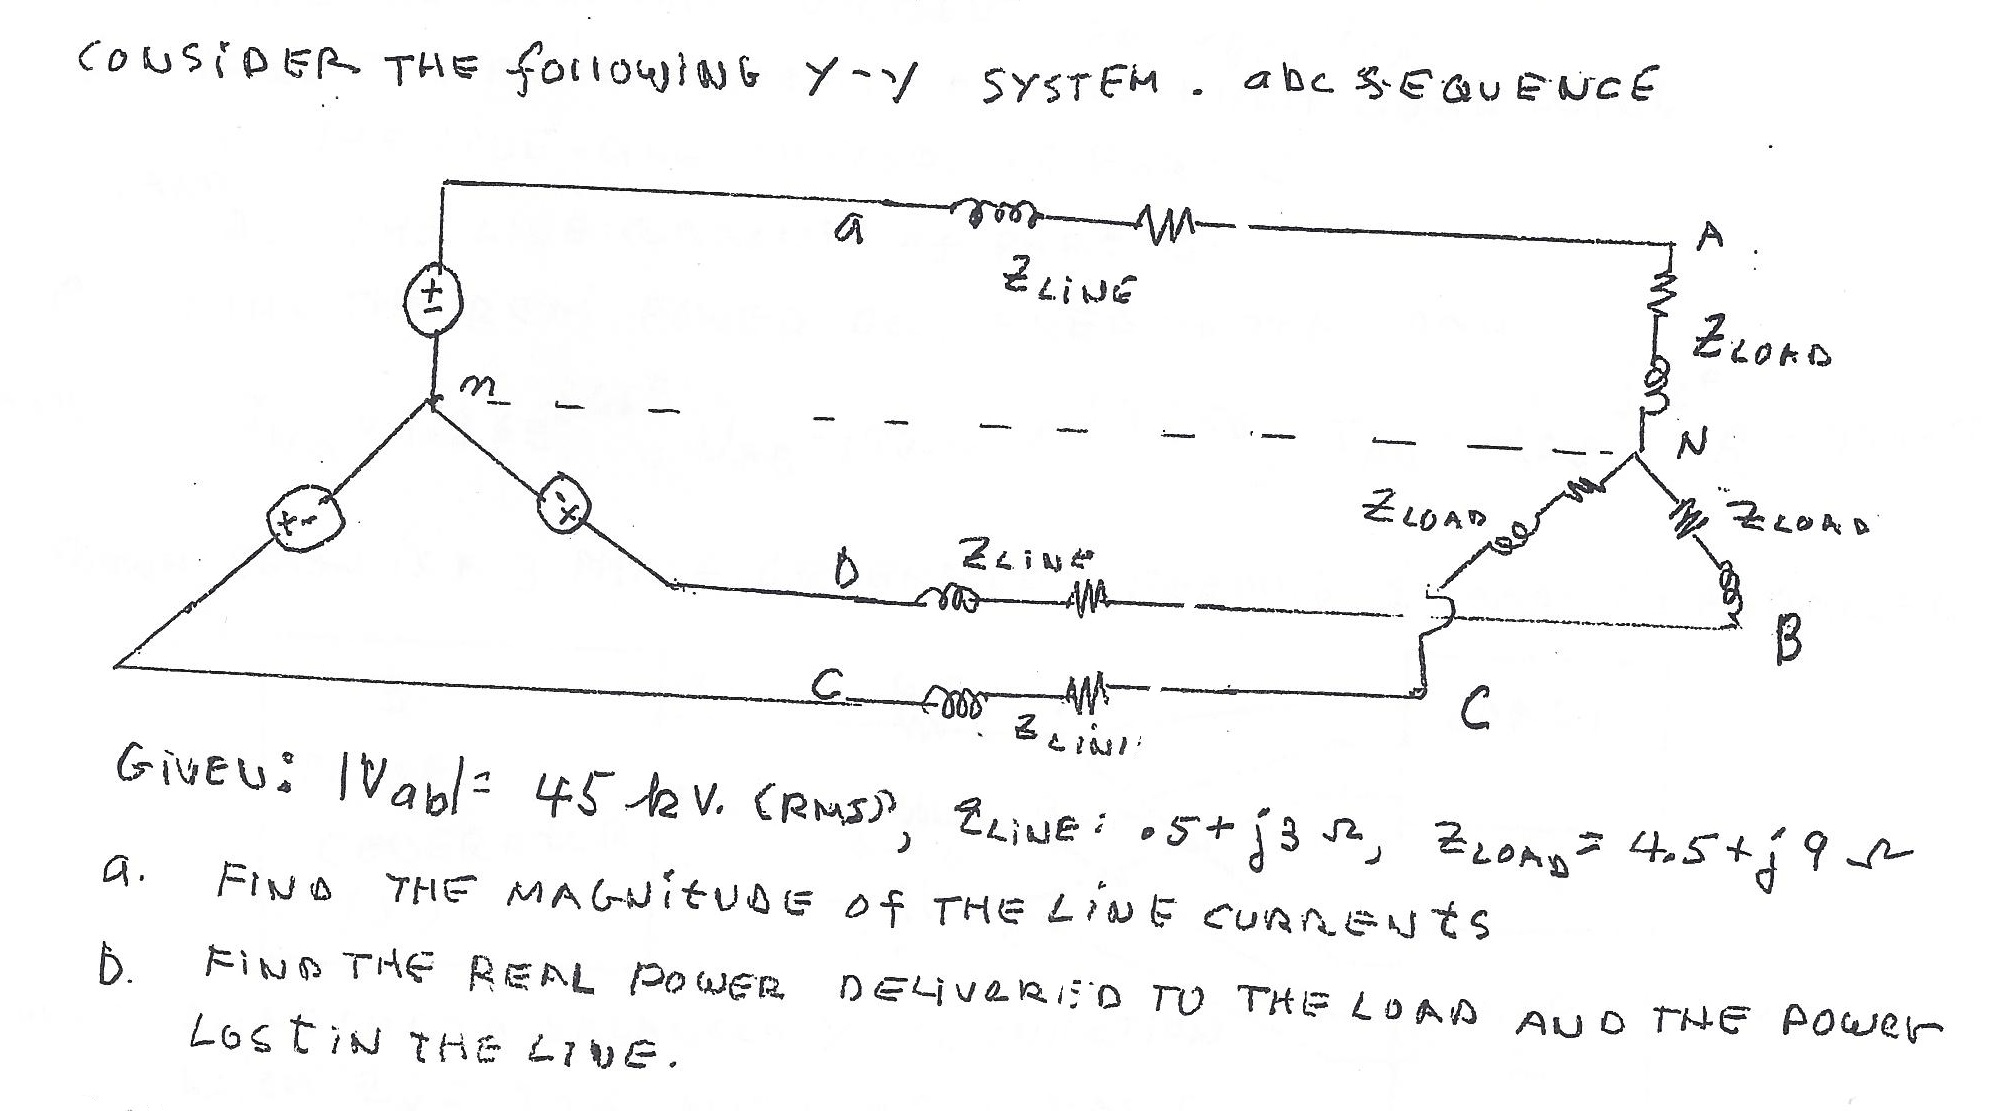 CONSIDER THE following Y-Y SYSTEM. abc SEQUENCE
a
A
Z LINE
Z LOAD
+
-
n
N
Z LOAD
Z LOAD
+ -
- +
b
Z LINE
B
C
Z LINE
C
GIVEN: |Vab| = 45 kV. (RMS), Z LINE: .5 + j3 Ω, Z LOAD = 4.5 + j9 Ω
a. FIND THE MAGNITUDE Of THE LINE CURRENTS
b. FIND THE REAL POWER DELIVERED TO THE LOAD AND THE POWER
LOST IN THE LINE.